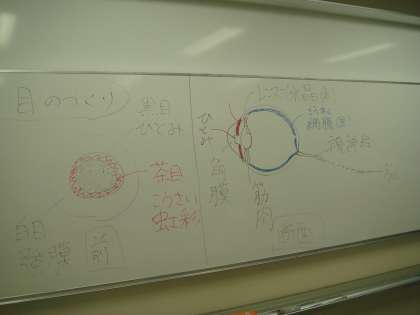 目のつくり
黒目
ひとみ
茶目
こうさい
虹彩
白目
強膜
前
ひとみ
角膜
レンズ(水晶体)
網膜
視神経
筋肉
断面